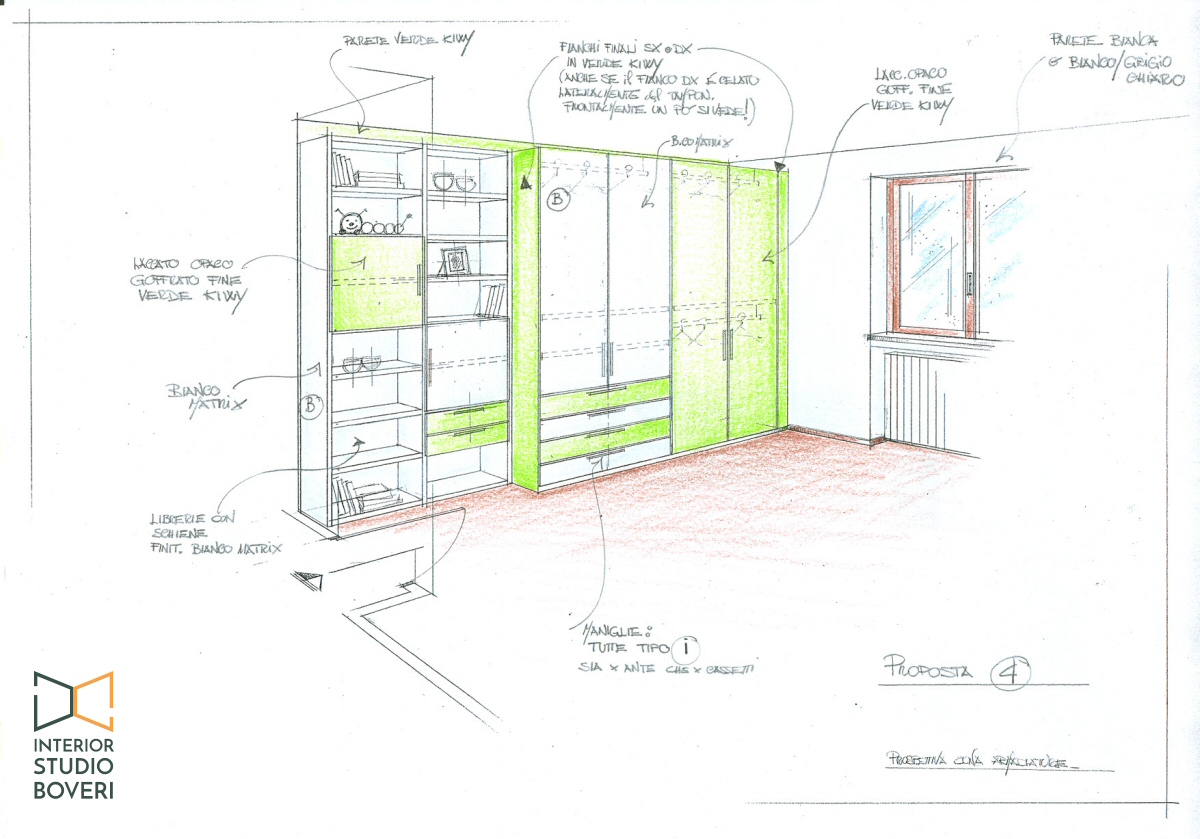 PARETE VERDE KIWY
FIANCHI FINALI SX e DX
IN VERDE KIWY
(ANCHE SE il FIANCO DX È CELATO
LATERALMENTE dal TAMPON.
FRONTALMENTE UN PO' SI VEDE!)
LACC. OPACO
GOFF. FINE
VERDE KIWY
PARETE BIANCA
O BIANCO/GRIGIO
CHIARO
B.CO MATRIX
B
LACCATO OPACO
GOFFRATO FINE
VERDE KIWY
BIANCO
MATRIX
B
LIBRERIE CON
SCHIENE
FINIT. BIANCO MATRIX
MANIGLIE:
TUTTE TIPO i
SIA x ANTE CHE x CASSETTI
PROPOSTA 4
PROSPETTIVA ZONA ARMADIATURE
INTERIOR
STUDIO
BOVERI